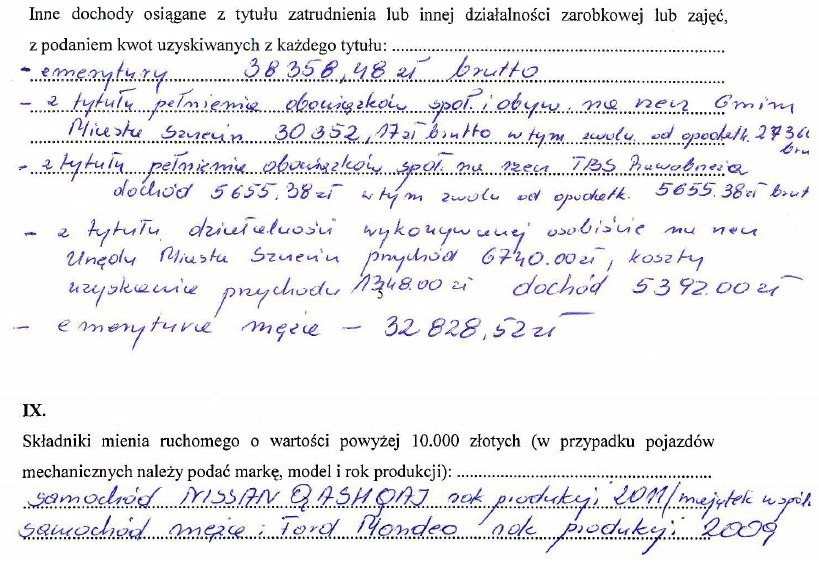 Inne dochody osiągane z tytułu zatrudnienia lub innej działalności zarobkowej lub zajęć,
z podaniem kwot uzyskiwanych z każdego tytułu:
- emerytury 38 358,48 zł brutto
- z tytułu pełnienia obowiązków społ. i obyw. na rzecz Gminy
Miasta Szczecin 30 352,17 zł brutto w tym zwoln. od opodatk. 27 36
bru
- z tytułu pełnienia obowiązków społ. na rzecz TBS Prawobrzeże
dochód 5655,38 zł w tym zwoln od opodatk. 5655.38 zł brut
- z tytułu działalności wykonywanej osobiście na rzecz
Urzędu Miasta Szczecin przychód 6740.00 zł, koszty
uzyskania przychodu 1348.00 zł dochód 5392.00 zł
- emerytura męża - 32 828,52 zł
IX.
Składniki mienia ruchomego o wartości powyżej 10.000 złotych (w przypadku pojazdów
mechanicznych należy podać markę, model i rok produkcji):
samochód NISSAN QASHQAJ rok produkcji 2011/majątek wspól.
samochód męża : Ford Mondeo rok produkcji 2009